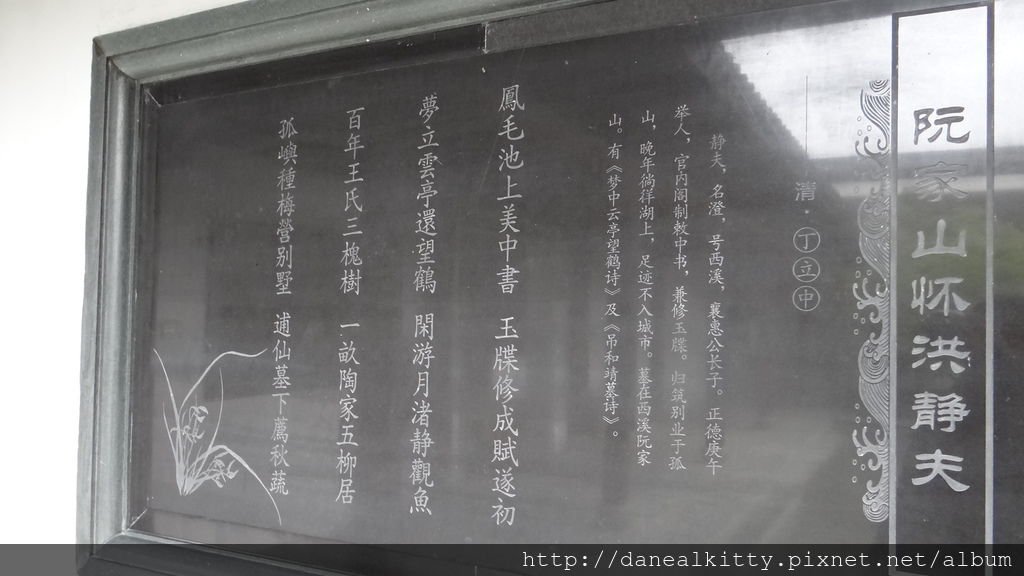 阮家山怀洪静夫
清·丁立中
静夫，名澄，号西溪，襄惠公长子。正德庚午
举人，官内阁制敕中书，兼修玉牒。归筑别业于孤
山，晚年徜徉湖上，足迹不入城市。墓在西溪阮家
山。有《梦中云亭望鹤诗》及《吊和靖墓诗》。
鳳毛池上美中書 玉牒修成賦遂初
夢立雲亭還望鶴 閑游月渚静觀魚
百年王氏三槐樹 一畝陶家五柳居
孤嶼種梅營别墅 逋仙墓下薦秋蔬
http://danealkitty.pixnet.net/album